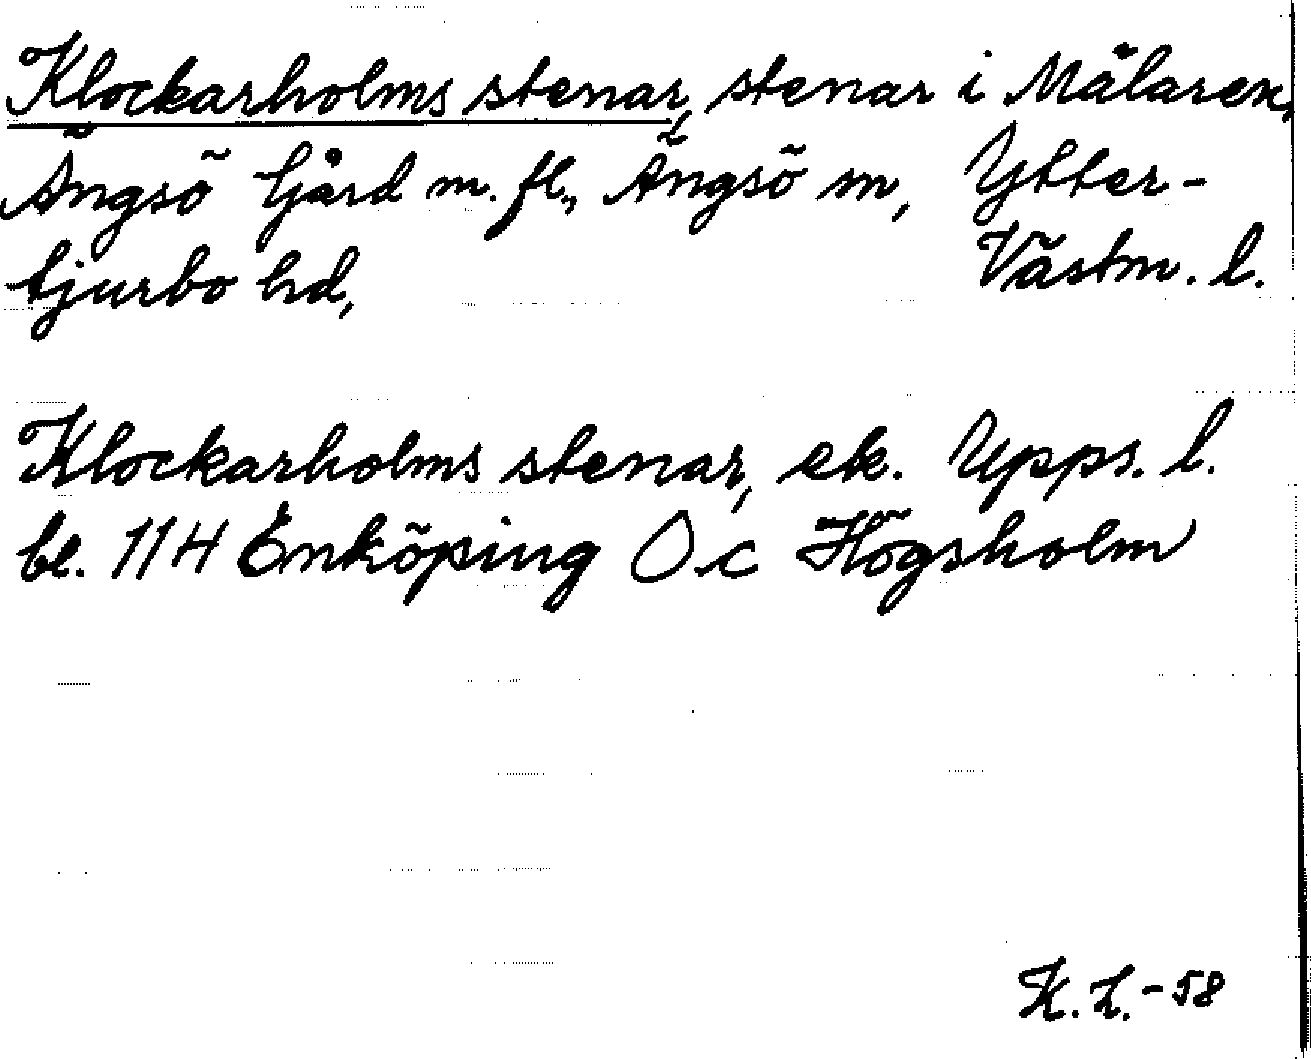 Klockarholms stenar, stenar i Mälaren,
Ängsö Gård m. fl., Ängsö sn, Ytter-
tjurbo hd, Västm. l.
Klockarholms stenar, ek. Upps. l.
bl. 114 Enköping O.c Högsholm
K. L. - 58